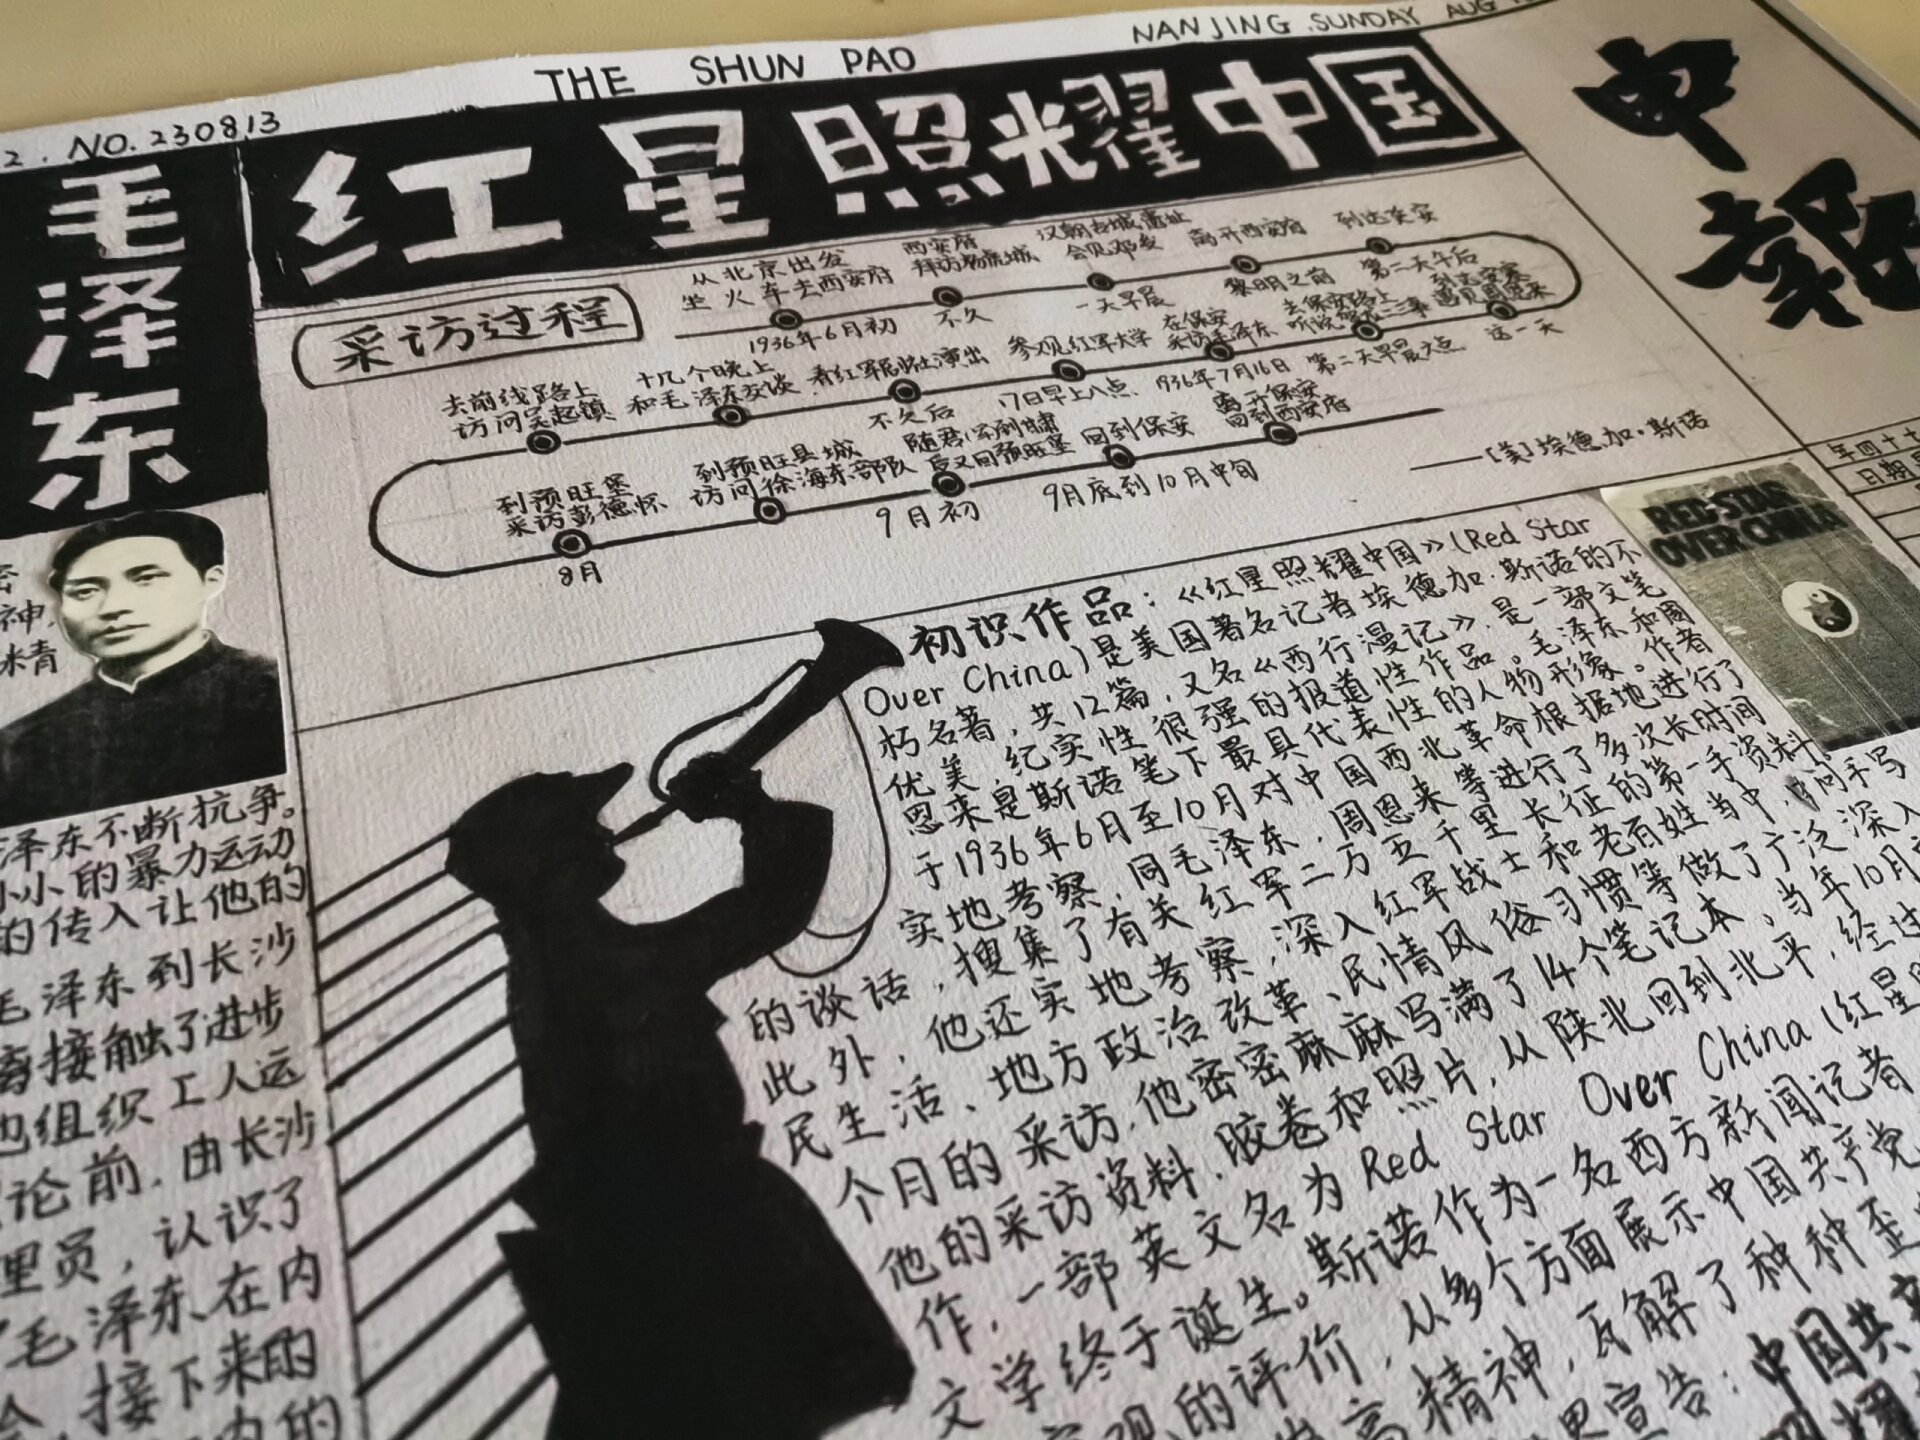 2. NO.230813
THE SHUN PAO
NANJING.SUNDAY AUG
申報
红星照耀中国
毛泽东
采访过程
从北京出发
坐火车去西安府
1936年6月初
西安府
拜访杨虎城
不久
汉朝古城遗址
会见邓发
一天早晨
离开西安府
黎明之前
到达延安
第二天午后
到达安塞
遇见周恩来
这一天
去保安路上
第二天早晨六点
在保安
采访毛泽东
1936年7月16日
参观红军大学
17日早上八点
看红军剧社演出
不久后
十几个晚上
和毛泽东交谈
去前线路上
访问吴起镇
到预旺堡
采访彭德怀
8月
到预旺县城
访问徐海东部队
后又回预旺堡
9月初
回到保安
9月底到10月中旬
离开保安
回到西安府
——[美]埃德加·斯诺
RED STAR
OVER CHINA
年四十七
初识作品:《红星照耀中国》(Red Star
Over China)是美国著名记者埃德加·斯诺的不
朽名著,共12篇,又名《西行漫记》,是一部文笔
优美,纪实性很强的报道性作品。毛泽东和周
恩来是斯诺笔下最具代表性的人物形象。作者
于1936年6月至10月对中国西北革命根据地进行了
实地考察,同毛泽东,周恩来等进行了多次长时间
的谈话,搜集了有关红军二万五千里长征的第一手资料。
此外,他还实地考察,深入红军战士和老百姓当中,
民生活、地方政治改革、民情风俗习惯等做了广泛深入
个月的采访,他密密麻麻写满了14个笔记本,当年10月
他的采访资料,胶卷和照片,从陕北回到北平,经过
作,一部英文名为Red Star Over China(红星
文学终于诞生。斯诺作为一名西方新闻记者
的评价,从多个方面展示中国共产党
精神,瓦解了种种歪
宣告:中国共
泽东不断抗争。
小小的暴力运动
的传入让他的
毛泽东到长沙
接触了进步
也组织工人运
论前,由长沙
里员,认识了
毛泽东在内
接下来的
内的